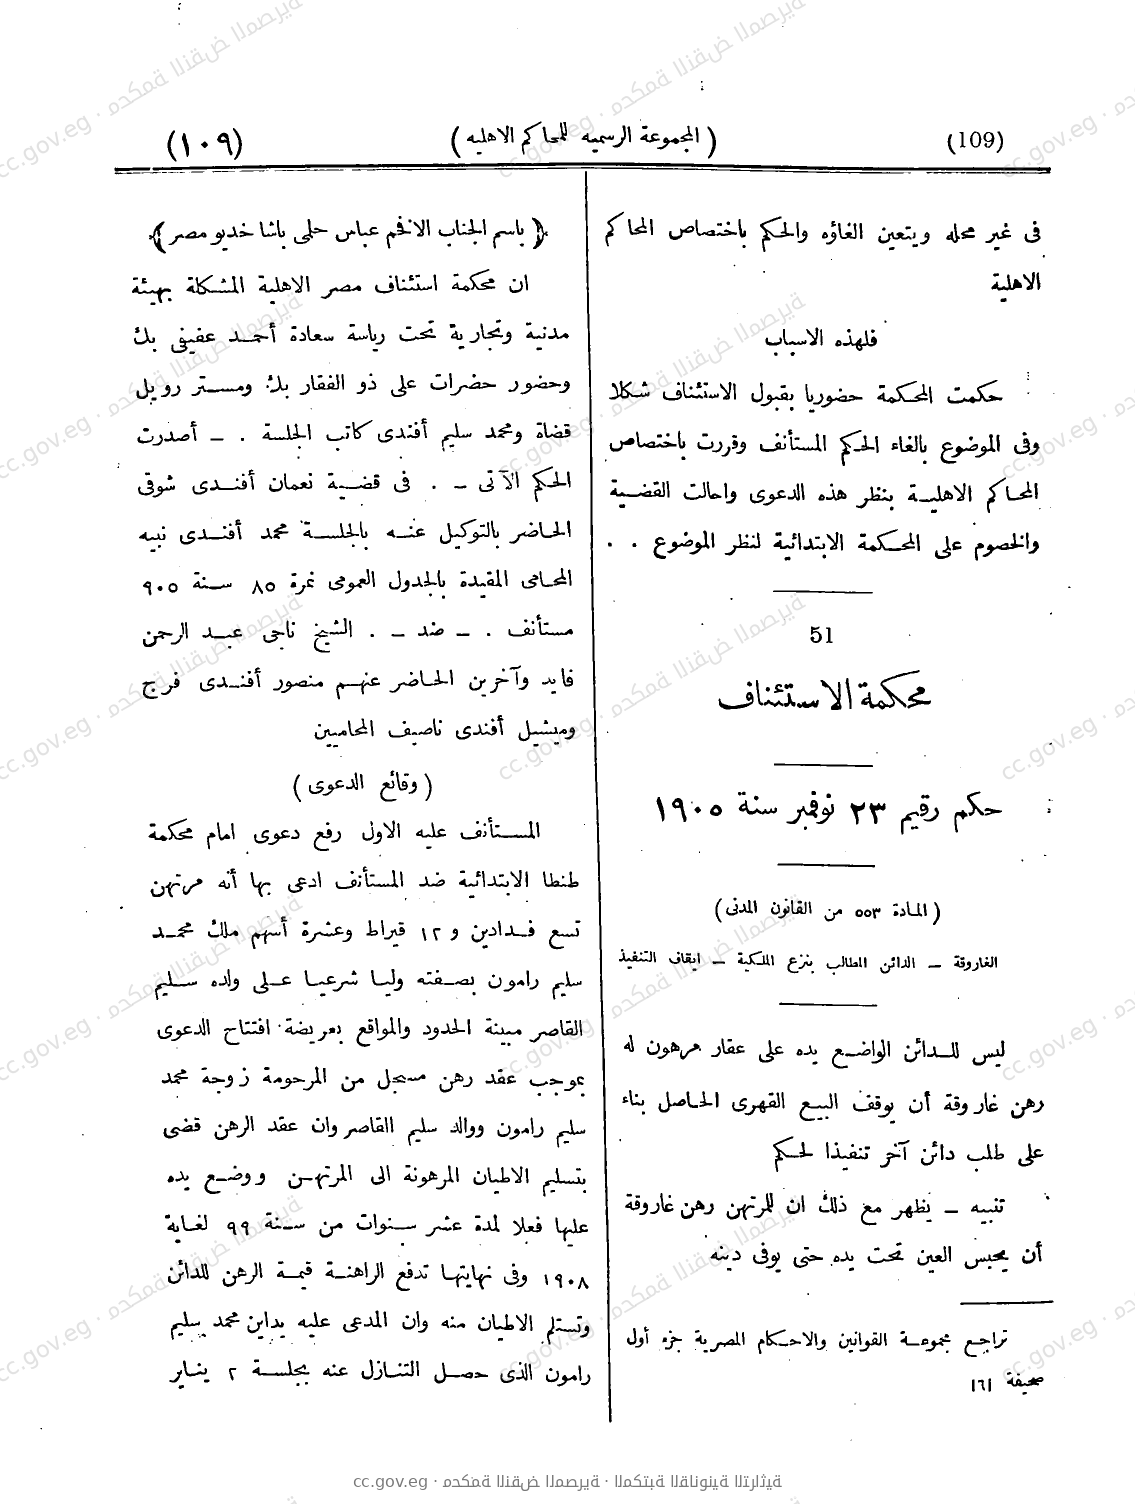 (109)
(المجموعة الرسميه للمحاكم الاهليه)
(١٠٩)
فى غير محله ويتعين الغاؤه والحكم باختصاص المحاكم
الاهلية
فلهذه الاسباب
حكمت المحكمة حضوريا بقبول الاستئناف شكلا
وفى الموضوع بالغاء الحكم المستأنف وقررت باختصاص
المحاكم الاهلية بنظر هذه الدعوى واحالت القضية
والخصوم على المحكمة الابتدائية لنظر الموضوع . .
51
محكمة الاستئناف
حكم رقيم ٢٣ نوفمبر سنة ١٩٠٥
(المادة ٥٥٣ من القانون المدنى)
الغاروقة – الدائن المطالب بنزع الملكية – ايقاف التنفيذ
ليس للدائن الواضع يده على عقار مرهون له
رهن غاروقة أن يوقف البيع القهرى الحاصل بناء
على طلب دائن آخر تنفيذا لحكم
تنبيه – يظهر مع ذلك ان للمرتهن رهن غاروقة
أن يحبس العين تحت يده حتى يوفى دينه
تراجع مجموعة القوانين والاحكام المصرية جزء أول
صحيفة ١٦١
﴿باسم الجناب الافخم عباس حلمى باشا خديو مصر﴾
ان محكمة استئناف مصر الاهلية المشكلة بهيئة
مدنية وتجارية تحت رياسة سعادة أحمد عفيفى بك
وحضور حضرات على ذو الفقار بك ومستر رويل
قضاة ومحمد سليم أفندى كاتب الجلسة . – أصدرت
الحكم الآتى – . فى قضية نعمان أفندى شوقى
الحاضر بالتوكيل عنه بالجلسة محمد أفندى نبيه
المحامى المقيدة بالجدول العمومى نمرة ٨٥ سنة ٩٠٥
مستأنف . – ضد – . الشيخ ناجى عبد الرحمن
فايد وآخرين الحاضر عنهم منصور أفندى فرج
وميشيل أفندى ناصيف المحاميين
(وقائع الدعوى)
المستأنف عليه الاول رفع دعوى امام محكمة
طنطا الابتدائية ضد المستأنف ادعى بها أنه مرتهن
تسع فدادين و ١٢ قيراط وعشرة أسهم ملك محمد
سليم رامون بصفته وليا شرعيا على ولده سليم
القاصر مبينة الحدود والمواقع بعريضة افتتاح الدعوى
بموجب عقد رهن مسجل من المرحومة زوجة محمد
سليم رامون ووالد سليم القاصر وان عقد الرهن قضى
بتسليم الاطيان المرهونة الى المرتهن ووضع يده
عليها فعلا لمدة عشر سنوات من سنة ٩٩ لغاية
١٩٠٨ وفى نهايتها تدفع الراهنة قيمة الرهن للدائن
وتستلم الاطيان منه وان المدعى عليه يداين محمد سليم
رامون الذى حصل التنازل عنه بجلسة ٢ يناير
cc.gov.eg · محكمة النقض المصرية · المكتبة القانونية التراثية